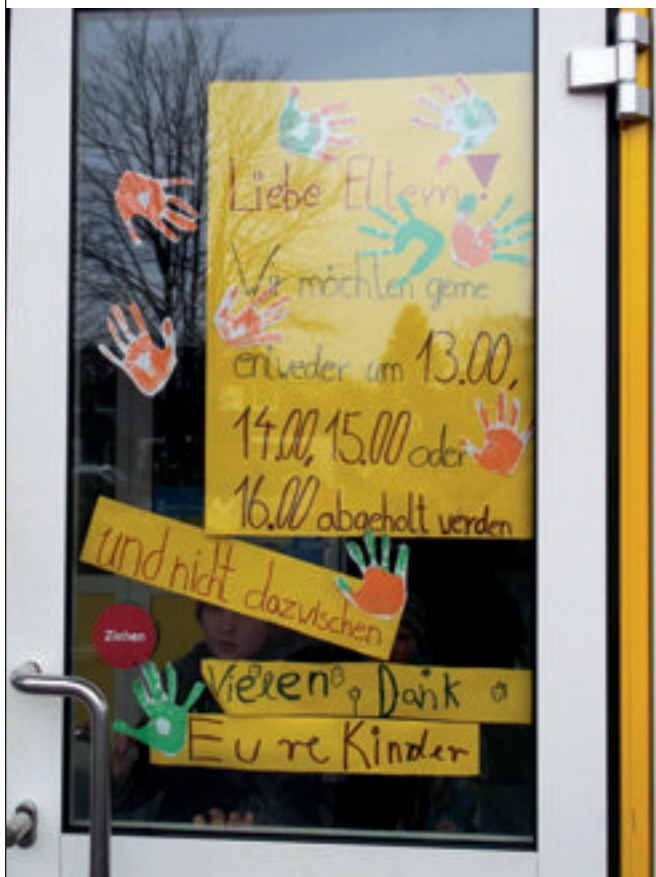 Liebe Eltern!
Wir möchten gerne
entweder um 13.00,
14.00, 15.00 oder
16.00 abgeholt werden
und nicht dazwischen
Ziehen
Vielen Dank
Eure Kinder